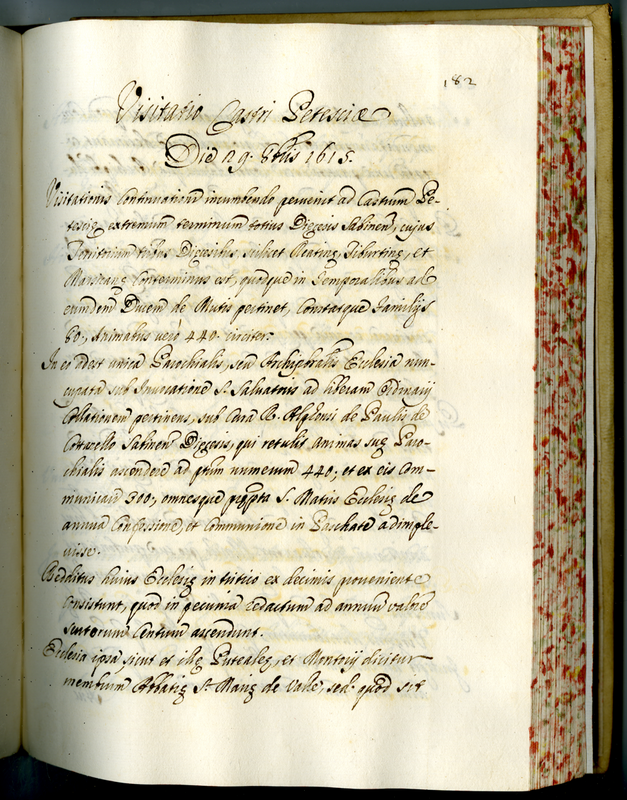 182
Visitatio Castri Petesciæ
Die 29. 8bris 1615.
Visitationis Continuationi incumbendo pervenit ad Castrum Pe-
tesciæ extremum terminum totius Diœcesis Sabinen, cujus
Territorium tribus Diœcesibus, scilicet Reatinæ, Tiburtinæ, et
Marsicanæ Conterminus est, quodque in Temporalibus ad
eundem Ducem de Mutis pertinet, Constatque Familijs
60., Animabus vero 440. circiter.
In eo adest unica Parochialis, seu Archipbralis Ecclesia nun-
cupata sub Invocatione S. Salvatoris ad liberam Ordinarij
Collationem pertinens, sub Cura R. Alphonsi de Paulis de
Cottanello Sabinen Diœcesis, qui retulit animas suæ Paro-
chialis ascendere ad ptum numerum 440, et ex eis Com-
municari 300, omnesque præcepta S. Matris Ecclesiæ de
annua Confessione, et Communione in Paschate adimple-
visse.
Redditus huius Ecclesiæ in tritico ex decimis proveniente
Consistunt, quod in pecunia redactum ad annuum valore
scutorum Centum ascendunt.
Ecclesia ipsa sicut et illæ Putealeæ, et Montorij dicitur
membrum Abbatiæ S. Mariæ de Valle, sed quod sit